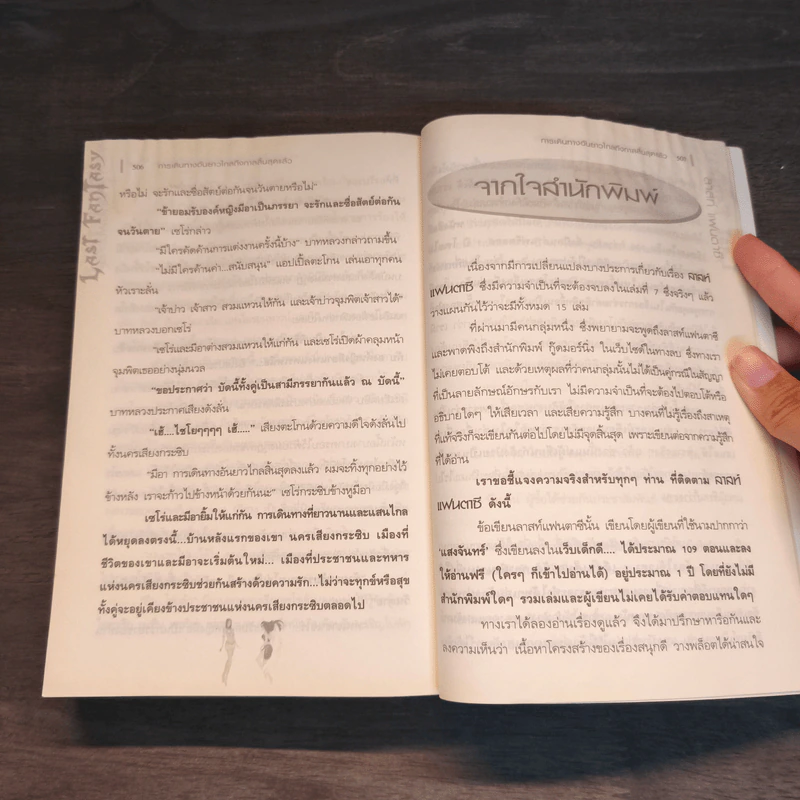 LAST FANTASY
306 การเดินทางอันยาวไกลถึงกาลสิ้นสุดแล้ว
หรือไม่ จะรักและซื่อสัตย์ต่อกันจนวันตายหรือไม่"
"ข้ายอมรับองค์หญิงมีอาเป็นภรรยา จะรักและซื่อสัตย์ต่อกัน
จนวันตาย" เซโร่กล่าว
"มีใครคัดค้านการแต่งงานครั้งนี้บ้าง" บาทหลวงกล่าวถามขึ้น
"ไม่มีใครค้านค่า...สนับสนุน" แอปเปิ้ลตะโกน เล่นเอาทุกคน
หัวเราะลั่น
"เจ้าบ่าว เจ้าสาว สวมแหวนให้กัน และเจ้าบ่าวจุมพิตเจ้าสาวได้"
บาทหลวงบอกเซโร่
"เซโร่และมีอาต่างสวมแหวนให้แก่กัน และเซโร่เปิดผ้าคลุมหน้า
จุมพิตเธออย่างนุ่มนวล
"ขอประกาศว่า บัดนี้ทั้งคู่เป็นสามีภรรยากันแล้ว ณ บัดนี้"
บาทหลวงประกาศเสียงดังลั่น
"เฮ้....ไชโยๆๆๆๆ เฮ้....." เสียงตะโกนด้วยความดีใจดังลั่นไป
ทั้งนครเสียงกระซิบ
"มีอา การเดินทางอันยาวไกลสิ้นสุดลงแล้ว ผมจะทิ้งทุกอย่างไว้
ข้างหลัง เราจะก้าวไปข้างหน้าด้วยกันนะ" เซโร่กระซิบข้างหูมีอา
เซโร่และมีอายิ้มให้แก่กัน การเดินทางที่ยาวนานและแสนไกล
ได้หยุดลงตรงนี้...บ้านหลังแรกของเขา นครเสียงกระซิบ เมืองที่
ชีวิตของเขาและมีอาจะเริ่มต้นใหม่... เมืองที่ประชาชนและทหาร
แห่งนครเสียงกระซิบช่วยกันสร้างด้วยความรัก...ไม่ว่าจะทุกข์หรือสุข
ทั้งคู่จะอยู่เคียงข้างประชาชนแห่งนครเสียงกระซิบตลอดไป
การเดินทางอันยาวไกลถึงกาลสิ้นสุดแล้ว 307
จากใจสำนักพิมพ์
เนื่องจากมีการเปลี่ยนแปลงบางประการเกี่ยวกับเรื่อง ลาสท์
แฟนตาซี ซึ่งมีความจำเป็นที่จะต้องจบลงในเล่มที่ 7 ซึ่งจริงๆ แล้ว
วางแผนกันไว้ว่าจะมีทั้งหมด 15 เล่ม
ที่ผ่านมามีคนกลุ่มหนึ่ง ซึ่งพยายามจะพูดถึงลาสท์แฟนตาซี
และพาดพิงถึงสำนักพิมพ์ กู๊ดมอร์นิ่ง ในเว็บไซต์ในทางลบ ซึ่งทางเรา
ไม่เคยตอบโต้ และด้วยเหตุผลที่ว่าคนกลุ่มนั้นไม่ได้เป็นคู่กรณีในสัญญา
ที่เป็นลายลักษณ์อักษรกับเรา ไม่มีความจำเป็นที่จะต้องไปตอบโต้หรือ
อธิบายใดๆ ให้เสียเวลา และเสียความรู้สึก บางคนที่ไม่รู้เรื่องถึงสาเหตุ
ที่แท้จริงก็จะเขียนกันต่อไปโดยไม่มีจุดสิ้นสุด เพราะเขียนต่อจากความรู้สึก
ที่ได้อ่าน
เราขอชี้แจงความจริงสำหรับทุกๆ ท่าน ที่ติดตาม ลาสท์
แฟนตาซี ดังนี้
ข้อเขียนลาสท์แฟนตาซีนั้น เขียนโดยผู้เขียนที่ใช้นามปากกาว่า
'แสงจันทร์' ซึ่งเขียนลงในเว็บเด็กดี.... ได้ประมาณ 109 ตอนและลง
ให้อ่านฟรี (ใครๆ ก็เข้าไปอ่านได้) อยู่ประมาณ 1 ปี โดยที่ยังไม่มี
สำนักพิมพ์ใดๆ รวมเล่มและผู้เขียนไม่เคยได้รับค่าตอบแทนใดๆ
ทางเราได้ลองอ่านเรื่องดูแล้ว จึงได้มาปรึกษาหารือกันและ
ลงความเห็นว่า เนื้อหาโครงสร้างของเรื่องสนุกดี วางพล็อตได้น่าสนใจ